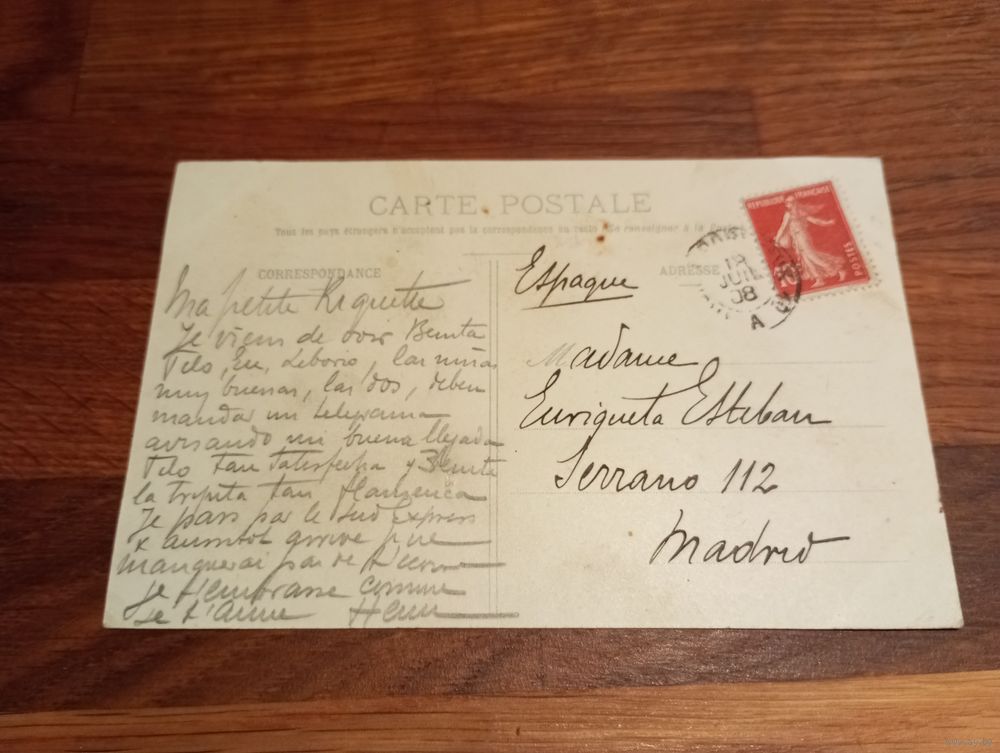 CARTE POSTALE
Tous les pays étrangers n'acceptent pas la correspondance au recto (Se renseigner à la Poste
CORRESPONDANCE
ADRESSE
REPUBLIQUE FRANÇAISE
POSTES
10
18
JUIL
08
Espagne
Madame
Enriqueta Esteban
Serrano 112
Madrid
Ma petite Riquette
Je viens de voir Benita
Tilo, las niñas
muy buenas, las dos, deben
mandar un telegrama
avisando mi buena llegada
Tilo tan satisfecha y Benita
la tripita tan flamenca
Je pars par le Sud Express
aussitot arrivé je ne
manquerai pas de t'ecrire
Je t'embrasse comme
Je t'aime Henri